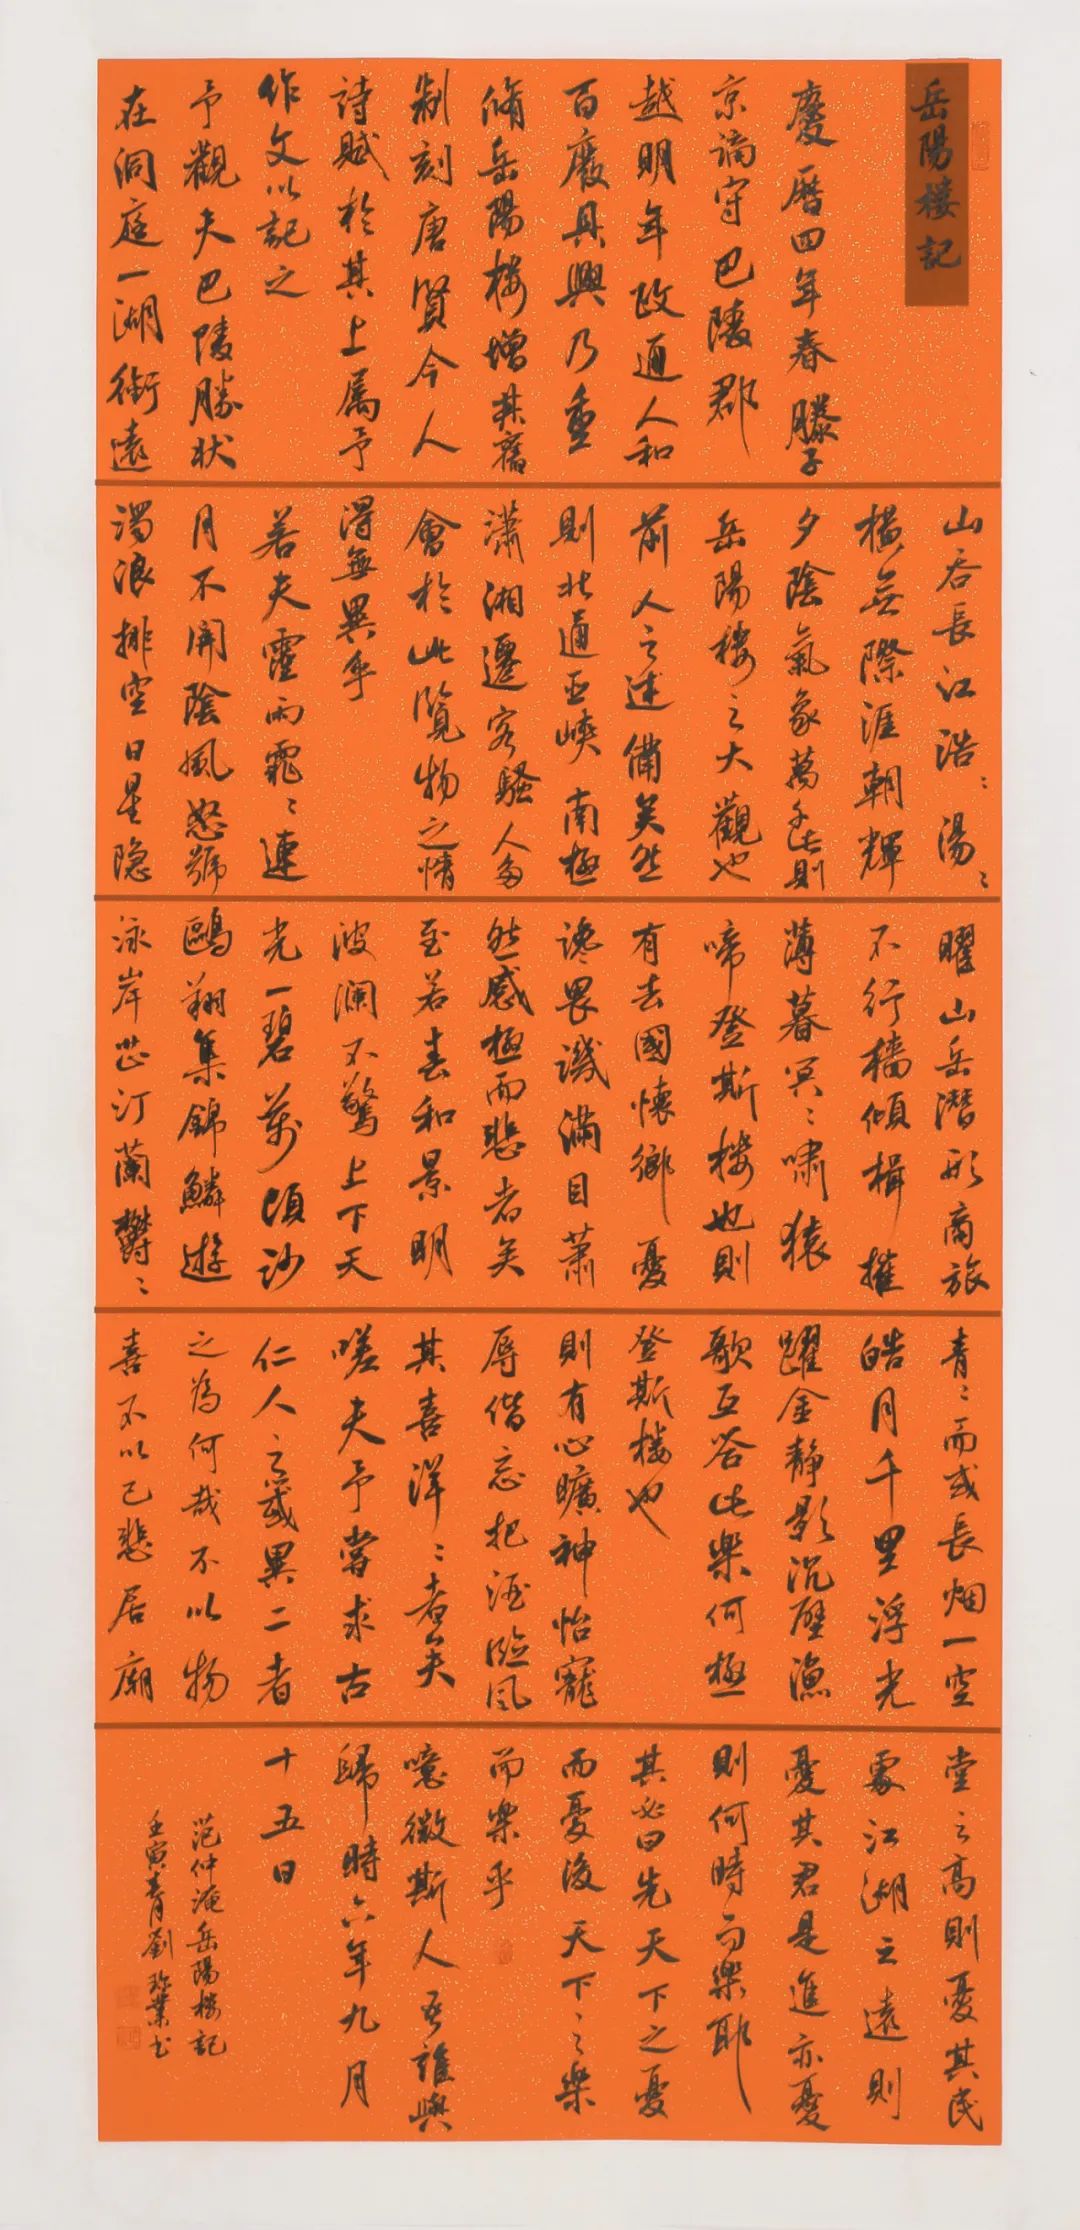 岳陽楼記
慶曆四年春滕子
京謫守巴陵郡
越明年政通人和
百廢具興乃重
脩岳陽楼增其舊
制刻唐賢今人
詩賦於其上属予
作文以記之
予觀夫巴陵勝狀
在洞庭一湖銜遠
山吞長江浩〻湯〻
橫無際涯朝輝
夕陰氣象萬千此則
岳陽楼之大觀也
前人之述備矣然
則北通巫峽南極
瀟湘遷客騷人多
會於此覽物之情
得無異乎
若夫霪雨霏〻連
月不開陰風怒號
濁浪排空日星隐
曜山岳潛形商旅
不行檣傾楫摧
薄暮冥〻嘯猿
啼登斯楼也則
有去國懷鄉憂
讒畏譏滿目蕭
然感極而悲者矣
至若春和景明
波瀾不驚上下天
光一碧萬頃沙
鷗翔集錦鱗遊
泳岸芷汀蘭鬱〻
青〻而或長烟一空
皓月千里浮光
躍金静影沉璧漁
歌互答此樂何極
登斯楼也
則有心曠神怡寵
辱偕忘把酒臨風
其喜洋〻者矣
嗟夫予嘗求古
仁人之或異二者
之為何哉不以物
喜不以己悲居廟
堂之高則憂其民
處江湖之遠則
憂其君是進亦憂
則何時而樂耶
其必曰先天下之憂
而憂後天下之樂
而樂乎
噫微斯人吾誰與
歸時六年九月
十五日
范仲淹岳陽楼記
壬寅青月劉業书